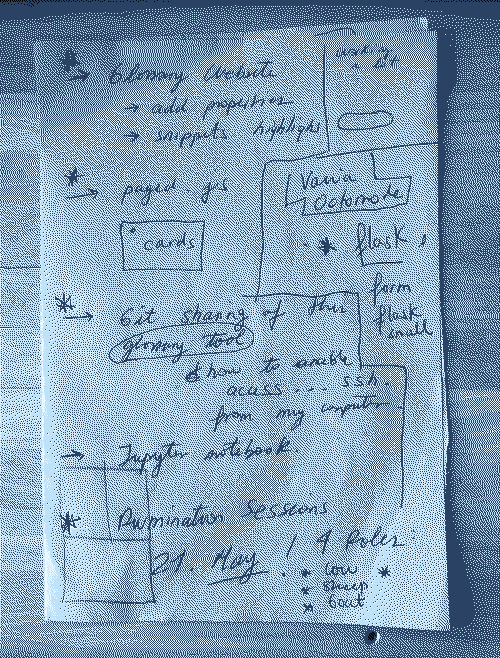 → Glossary Website
→ add properties
→ snippets highlight
* → paged.js
cards
Vawa
Octomode
* flask,
form
flask
small
* → Git sharing of this
glossary tool
& how to enable
acuss .... ssh.
from my computer
→ Jupyter notebook
* Rumination Sessions
21. May ! 4 Roles
* Cow *
* Sheep
* Goat